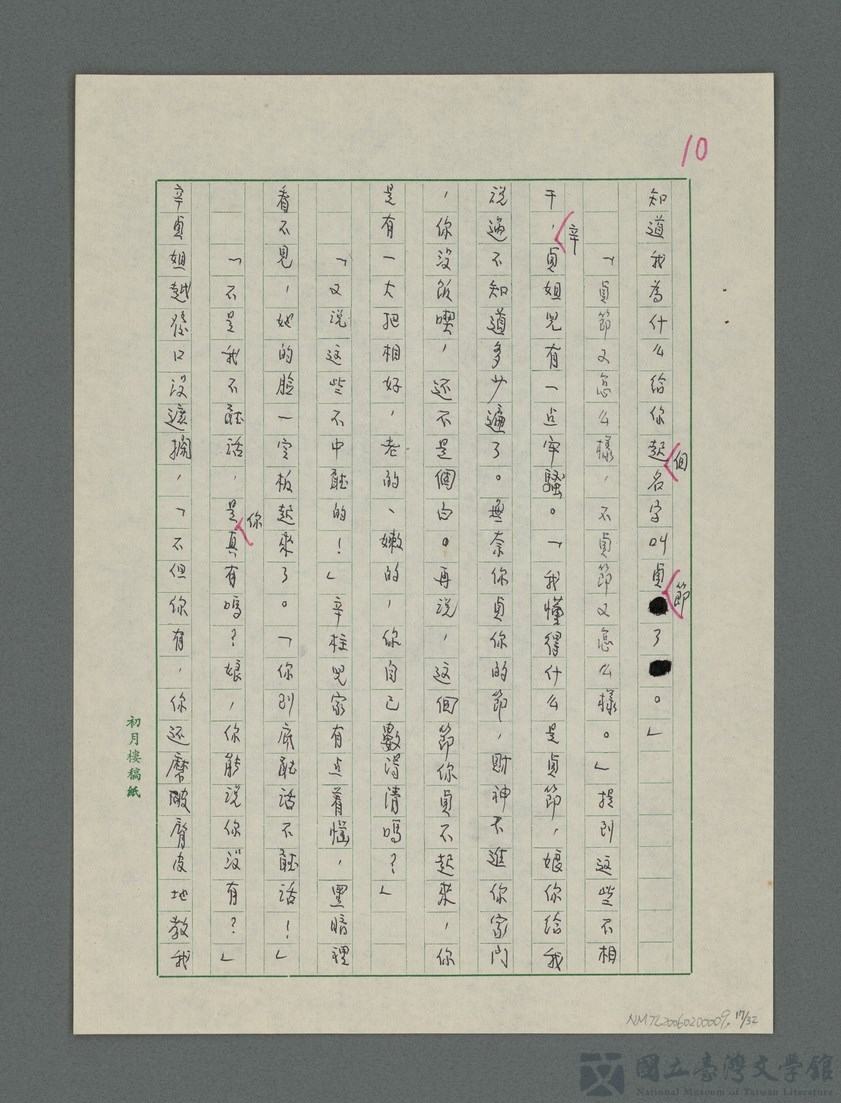 10
知道我為什么给你起個名字叫貞節了。」
「貞節又怎么樣，不貞節又怎么樣。」提到这些不相
干，辛貞姐兒有一点牢騷。「我懂得什么是貞節，娘你给我
说過不知道多少遍了。無奈你貞你的節，財神不進你家門
，你沒飯喫，还不是個白。再说，这個節你貞不起來，你
是有一大把相好，老的、嫩的，你自己數得清嗎？」
「又说这些不中聽的！」辛柱兒家有点着惱，黑暗裡
看不見，她的脸一定板起來了。「你到底聽話不聽話！」
「不是我不聽話，是你真有嗎？娘，你能说你沒有？」
辛貞姐越發口沒遮攔，「不但你有，你还磨破脣皮地教我
初月樓稿紙
NMTL20060200009. 17/32
國立臺灣文學館
National Museum of Taiwan Literature